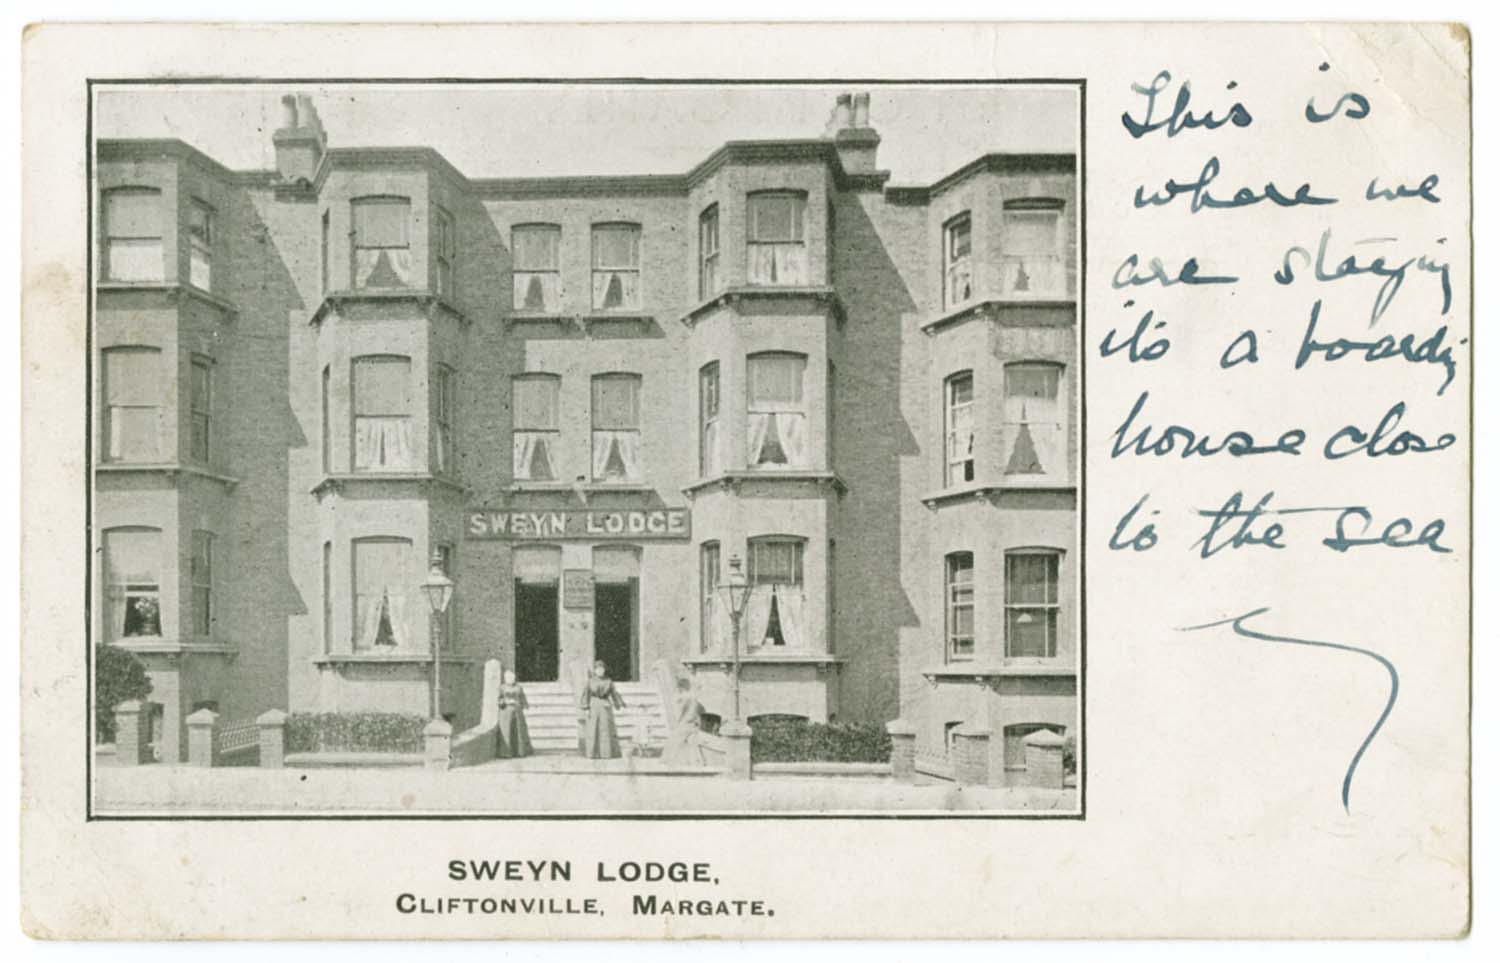 SWEYN LODGE
SWEYN LODGE,
CLIFTONVILLE, MARGATE.
This is
where we
are staying
it's a boarding
house close
to the sea